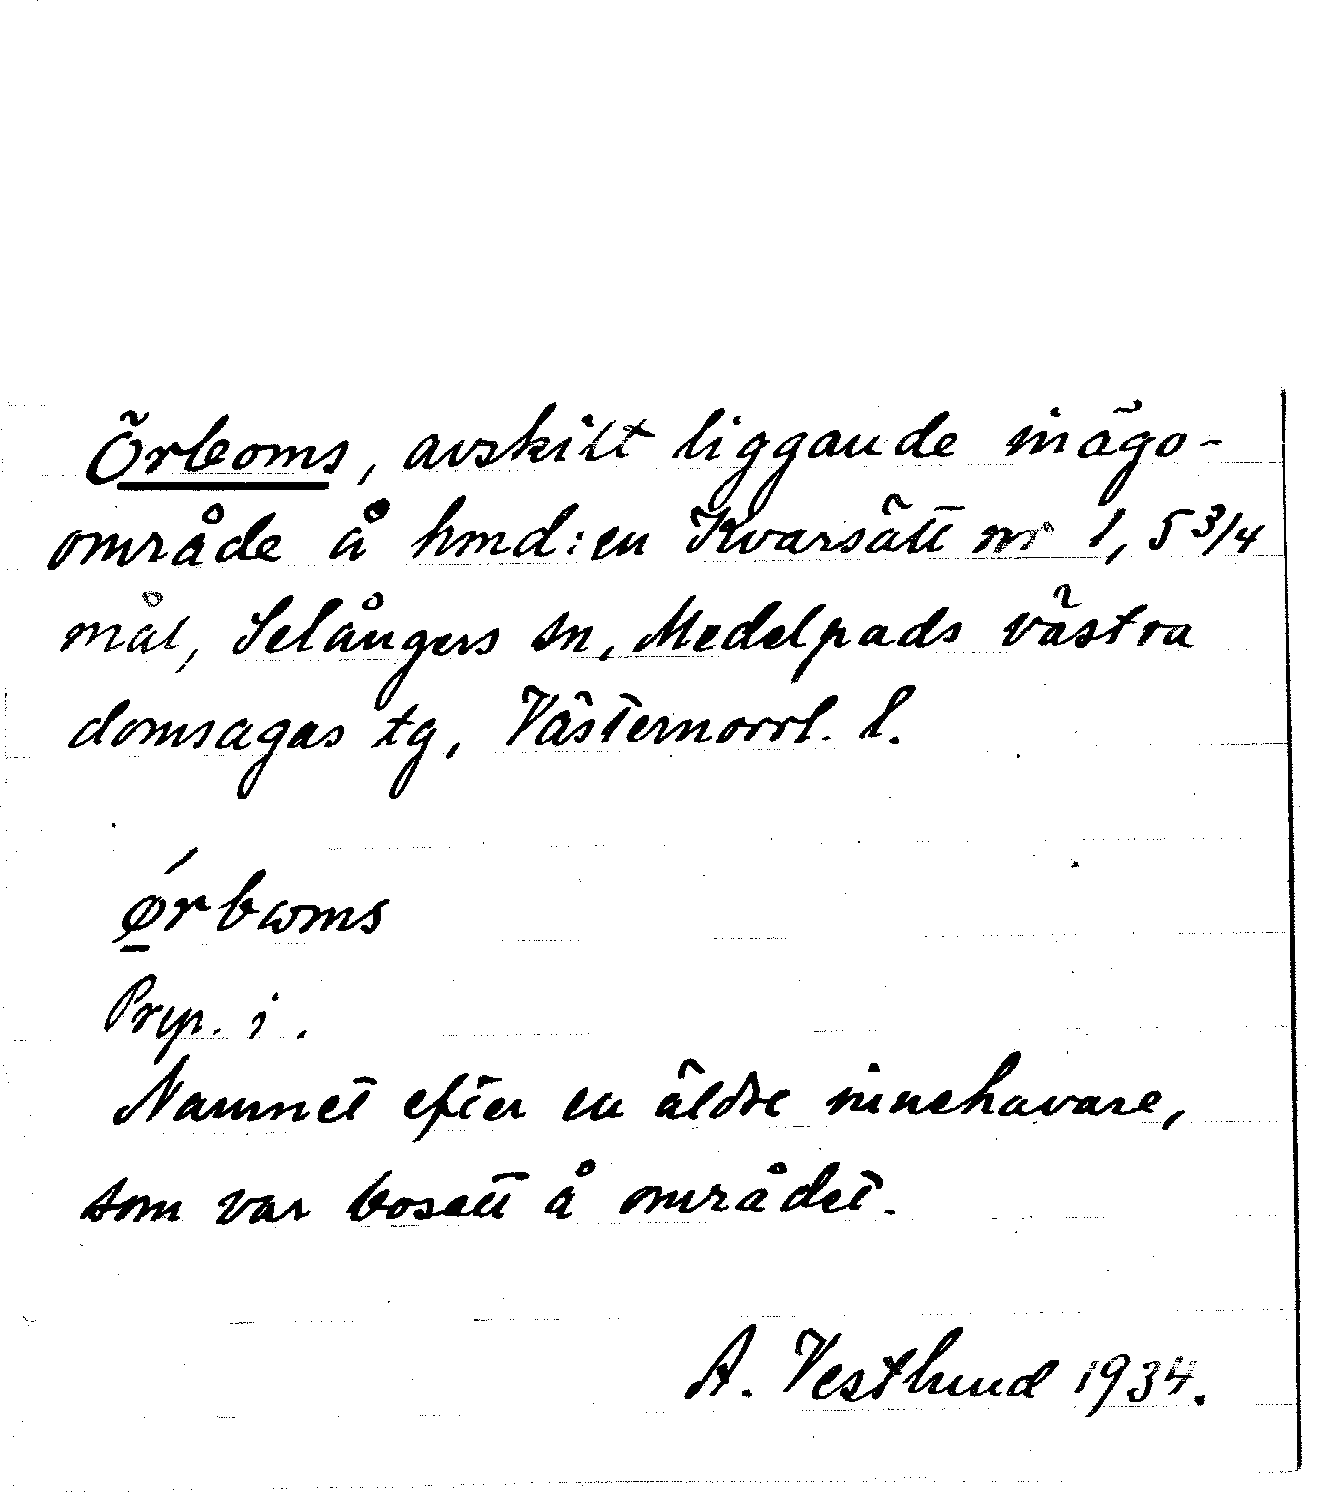 Örboms, avskilt liggande inägo-
område å hmd:en Kvarsätt nr 1, 5 3/4
mål, Selångers sn, Medelpads västra
domsagas tg, Västernorrl. l.
ǿrbωms
Prp. i.
Namnet efter en äldre innehavare,
som var bosatt å området.
A. Vestlund 1934.